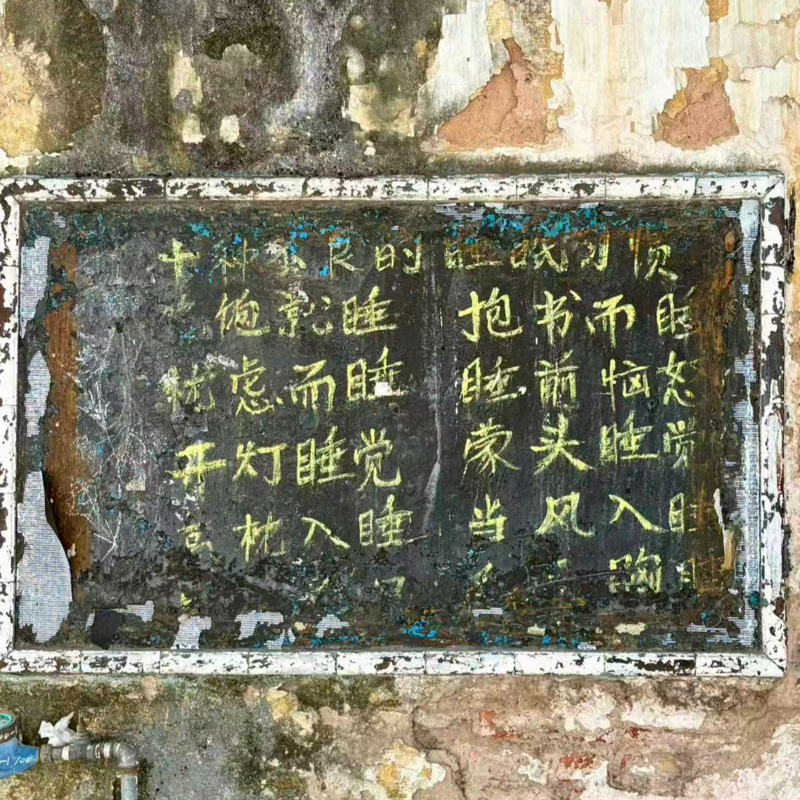 十种不良的睡眠习惯
饱就睡 抱书而睡
忧虑而睡 睡前恼怒
开灯睡觉 蒙头睡觉
高枕入睡 当风入睡
胸